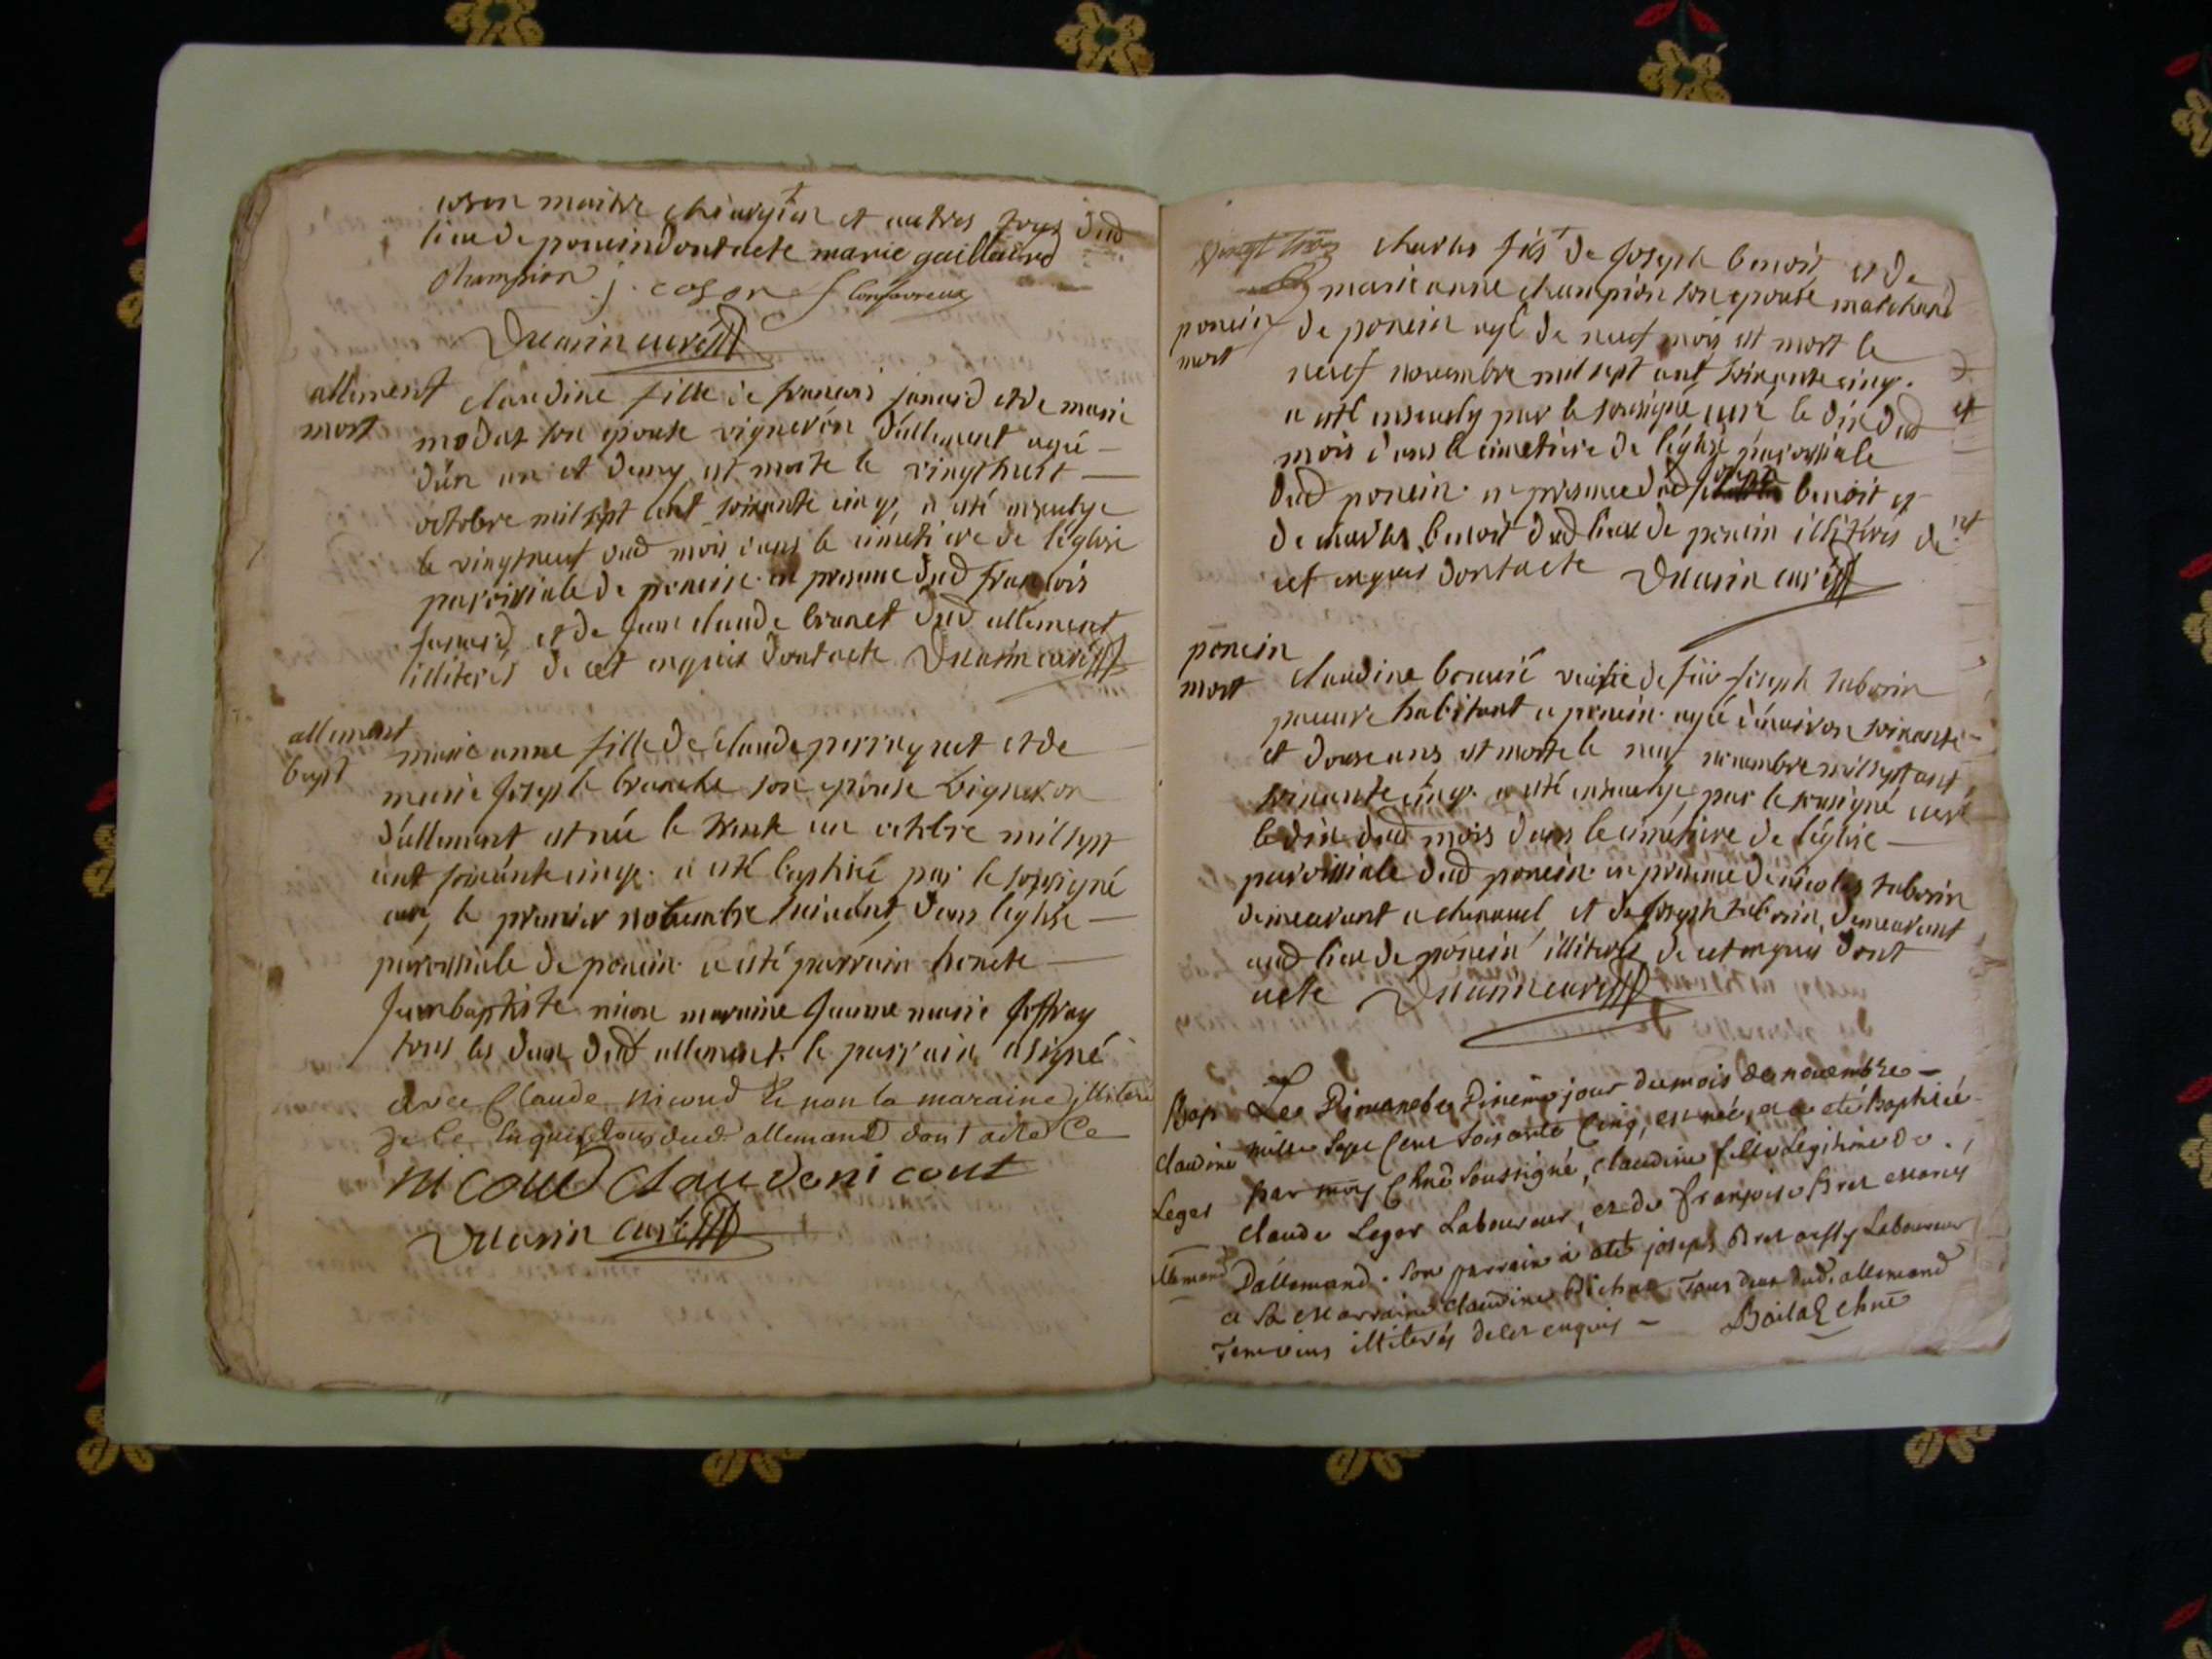 coson maitre chirurgien et autres tous dud
lieu de poncin dont acte marie gaillard
champion j. coson f Confavreux
Duarin curé
allement
mort
claudine fille de francois janard et de marie
modas son epouse vigneron d'allement agée
d'un an et demy est morte le vingt huit
octobre mil sept cent soixante cinq, a été ensevelye
le vingt neuf dud mois dans le cimetiere de l'eglise
paroissiale de poncin en presence dud francois
janard et de jean claude brunet dud allement
illiterés de cet enquis dont acte Duarin curé
allement
bapt
marie anne fille de claude perruquet et de
marie joseph branche son epouse vigneron
d'allement est née le trente un octobre mil sept
cent soixante cinq. a été baptisé par le sousigné
curé, le premier novembre suivant, dans l'eglise
paroissiale de poncin a été parrain honete
jean baptiste nicou maraine jeanne marie joffray
tous les deux dud allement. le parrain a signé
avec Claude nicoud & non la maraine illiteré
de ce enquis tous dud allemand dont acte Ce
nicoud Claude nicout
Duarin curé
charles fils de joseph benoit et de
marie anne champion son epouse marchand
poncin
mort
de poncin agé de neuf mois est mort le
neuf novembre mil sept cent soixante cinq.
a esté ensevely par le sousigné curé le dix dud
mois dans le cimetiere de l'eglise paroissiale
dud poncin. en presence dud joseph benoit et
de charles benoit dud lieu de poncin illiterés de
cet enquis dont acte Duarin curé
poncin
mort
claudine bonusé veufve de feu joseph taborin
pauvre habitant a poncin. agée d'environ soixante
et douze ans est morte le neuf novembre mil sept cent
soixante cinq. a été ensevelye par le sousigné curé
le dix dud mois dans le cimetiere de l'eglise
paroissiale dud poncin. en presence de nicolas taborin
demeurant a chenavel et de joseph taborin, demeurant
aud lieu de poncin illiterés de cet enquis dont
acte Duarin curé
Bap
claudine
Leger
allemand
Le Dimanche Dixieme jour du mois de novembre
mille Sept Cent Soixante Cinq, est née, et a eté Baptisée
par moy Chne soussigné, claudine fille légitime de
claude Leger Laboureur, et de françoise Bret
D'allemand. Son parrain a eté joseph Bret Laboureur
et sa marraine claudine Bichat Tous deux dud. allemand
Temoins illiterés de ces enquis Boilat chne